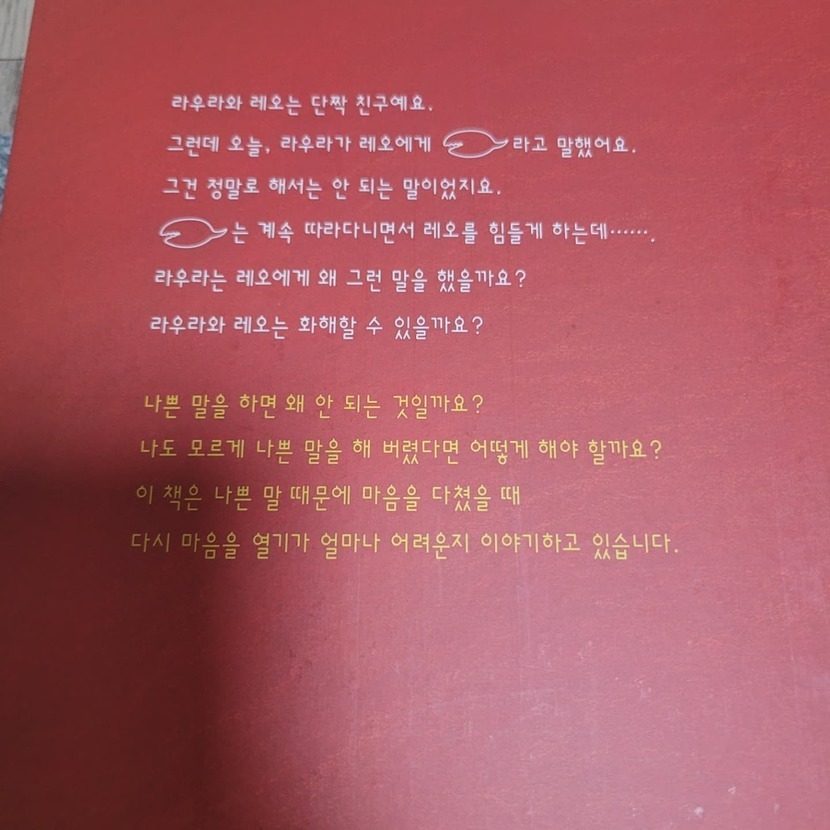 라우라와 레오는 단짝 친구예요.
그런데 오늘, 라우라가 레오에게 라고 말했어요.
그건 정말로 해서는 안 되는 말이었지요.
는 계속 따라다니면서 레오를 힘들게 하는데…….
라우라는 레오에게 왜 그런 말을 했을까요?
라우라와 레오는 화해할 수 있을까요?
나쁜 말을 하면 왜 안 되는 것일까요?
나도 모르게 나쁜 말을 해 버렸다면 어떻게 해야 할까요?
이 책은 나쁜 말 때문에 마음을 다쳤을 때
다시 마음을 열기가 얼마나 어려운지 이야기하고 있습니다.